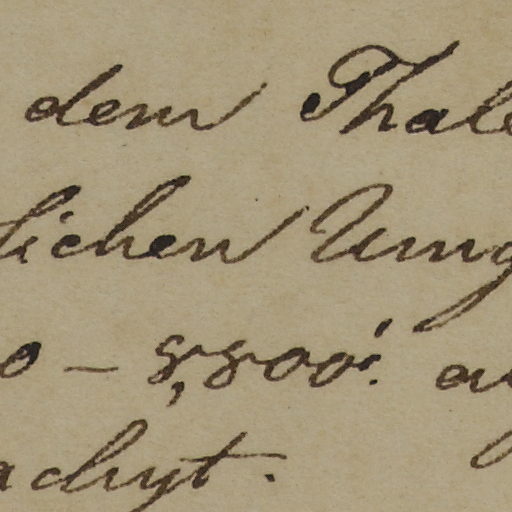 dem Thale
lichen Umg
0 – 8,800'. au
achyt.